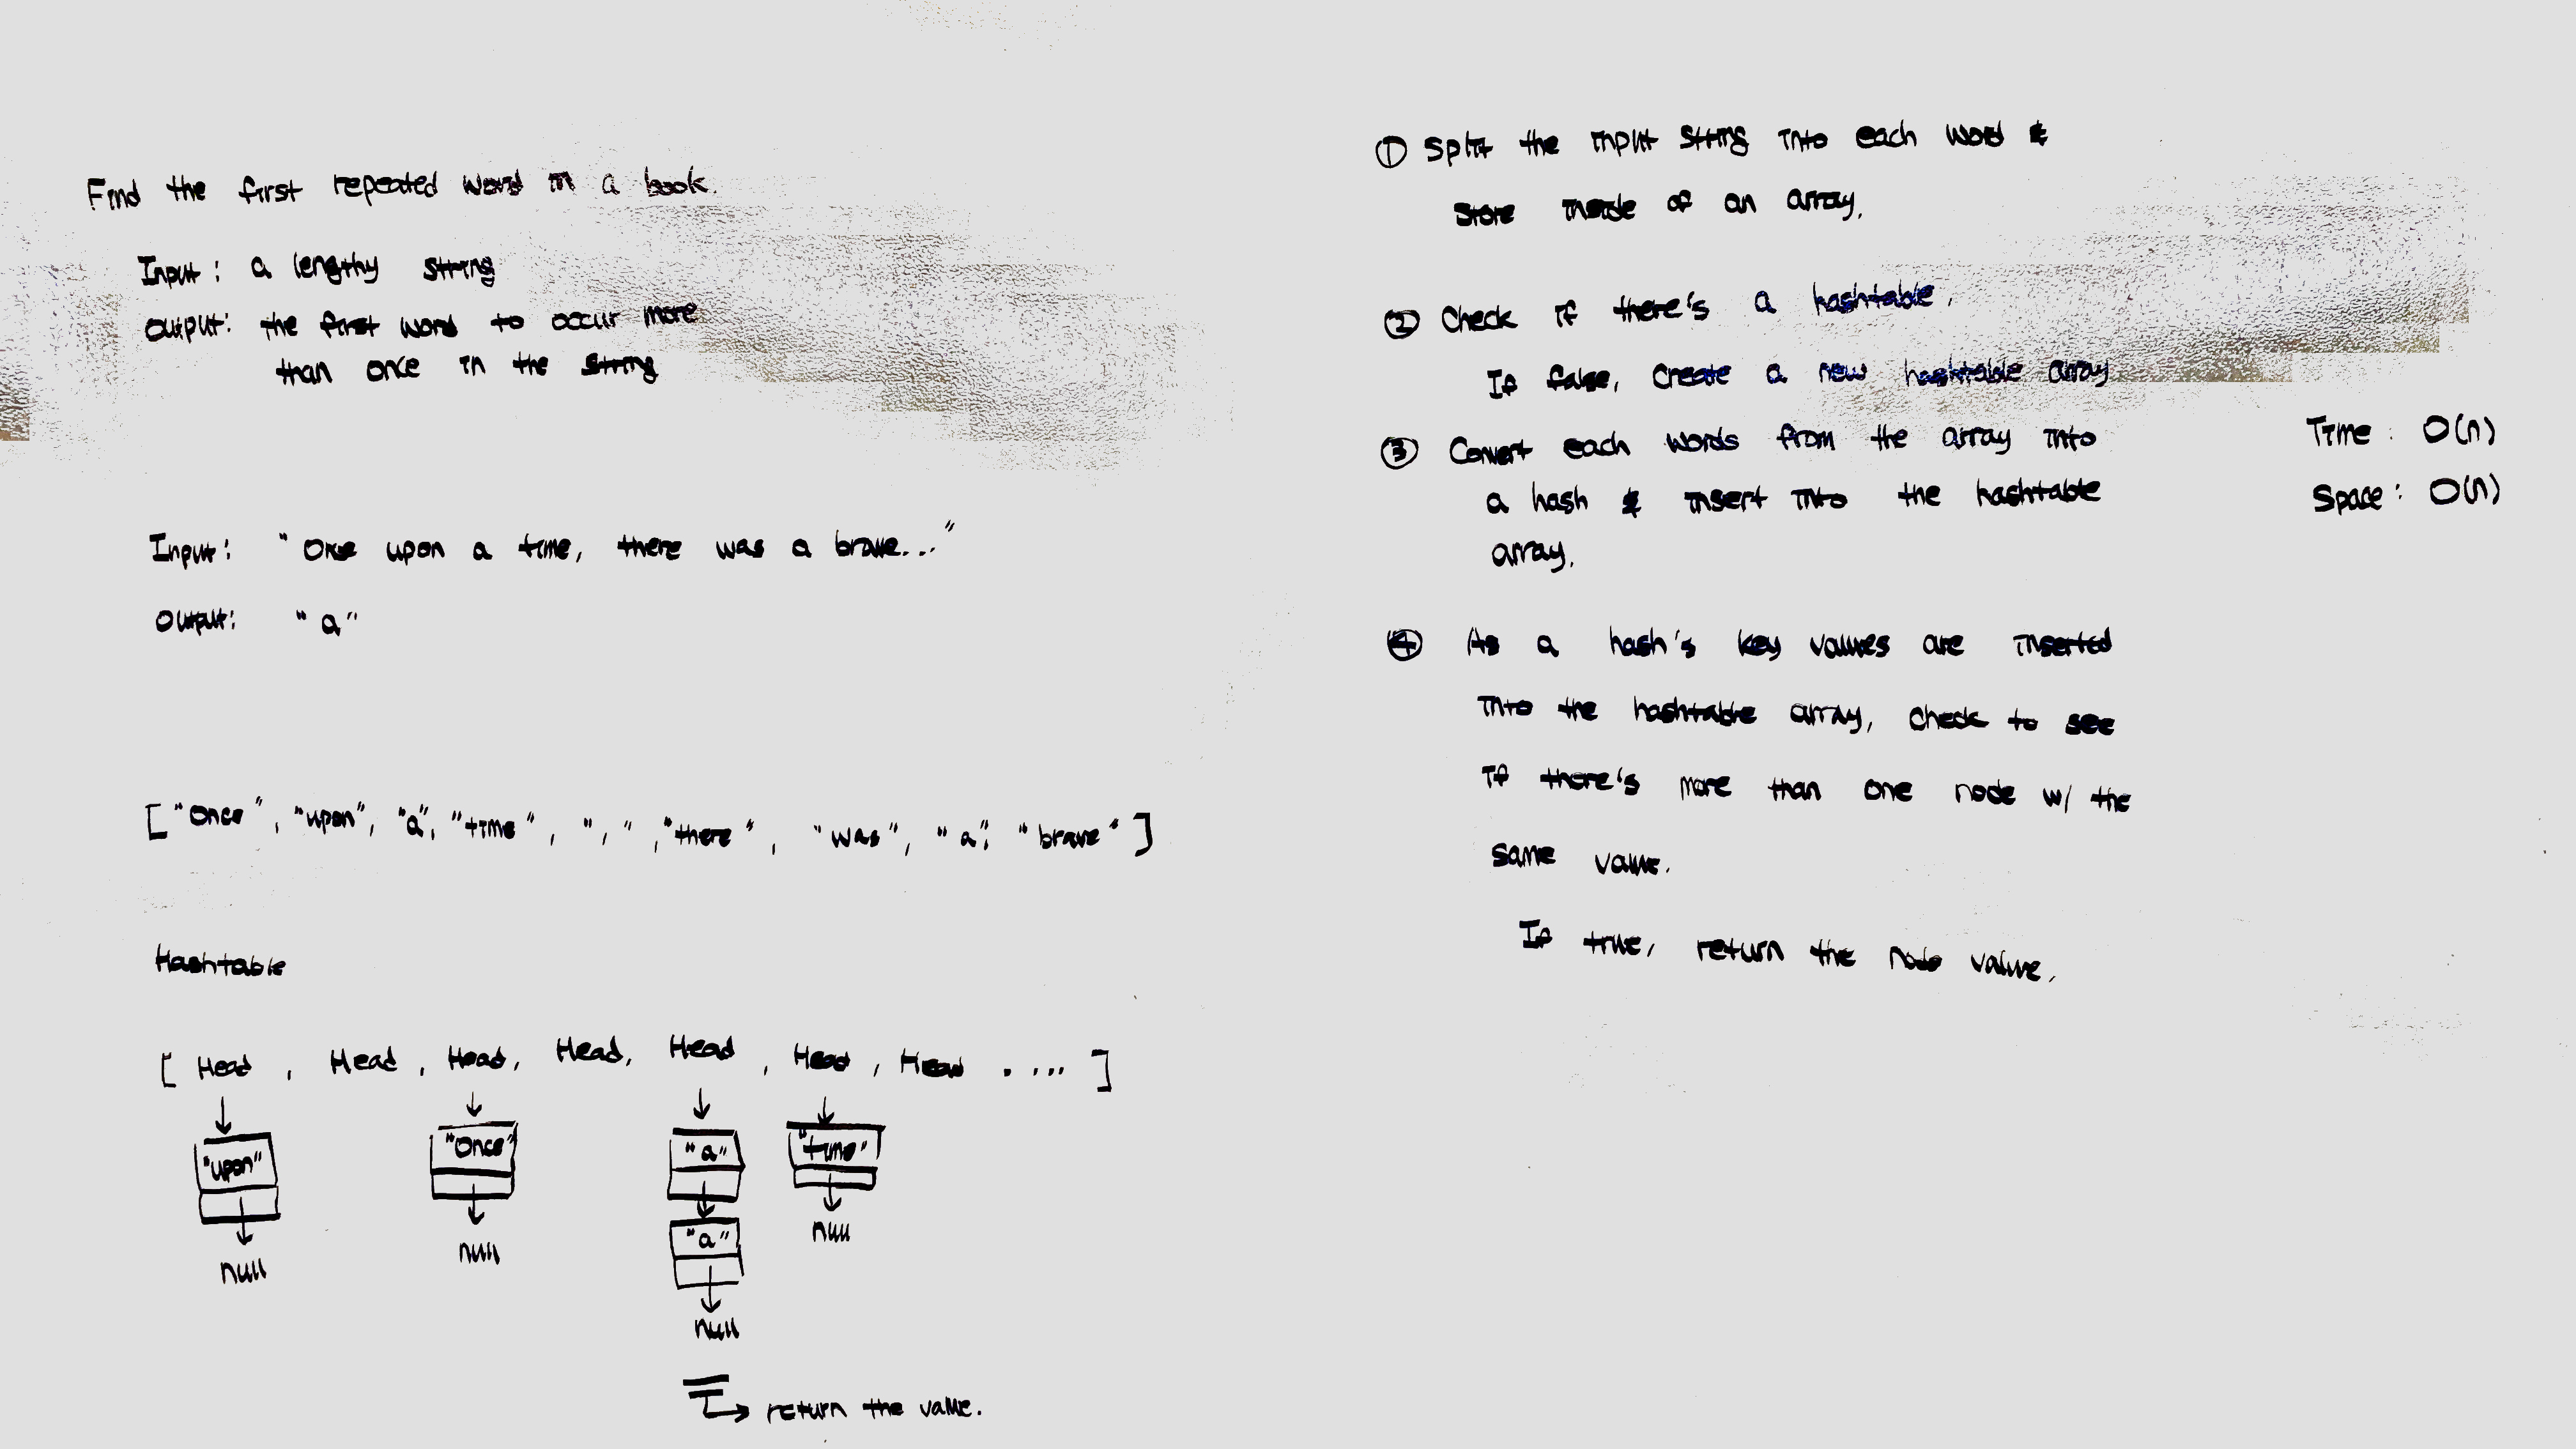 Find the first repeated word in a book.
Input: a lengthy string
Output: the first word to occur more
than once in the string
Input: "Once upon a time, there was a brave..."
Output: "a"
["Once", "upon", "a", "time", ",", "there", "was", "a", "brave"]
Hashtable
[Head, Head, Head, Head, Head, Head, Head ....]
"upon" "Once" "a" "time"
null null "a" null
null
return the value.
① Split the input string into each word &
store inside of an array.
② Check if there's a hashtable.
If false, create a new hashtable array
③ Convert each words from the array into
a hash & insert into the hashtable
array.
④ As a hash's key values are inserted
into the hashtable array, check to see
if there's more than one node w/ the
same value.
If true, return the node value.
Time: O(n)
Space: O(n)